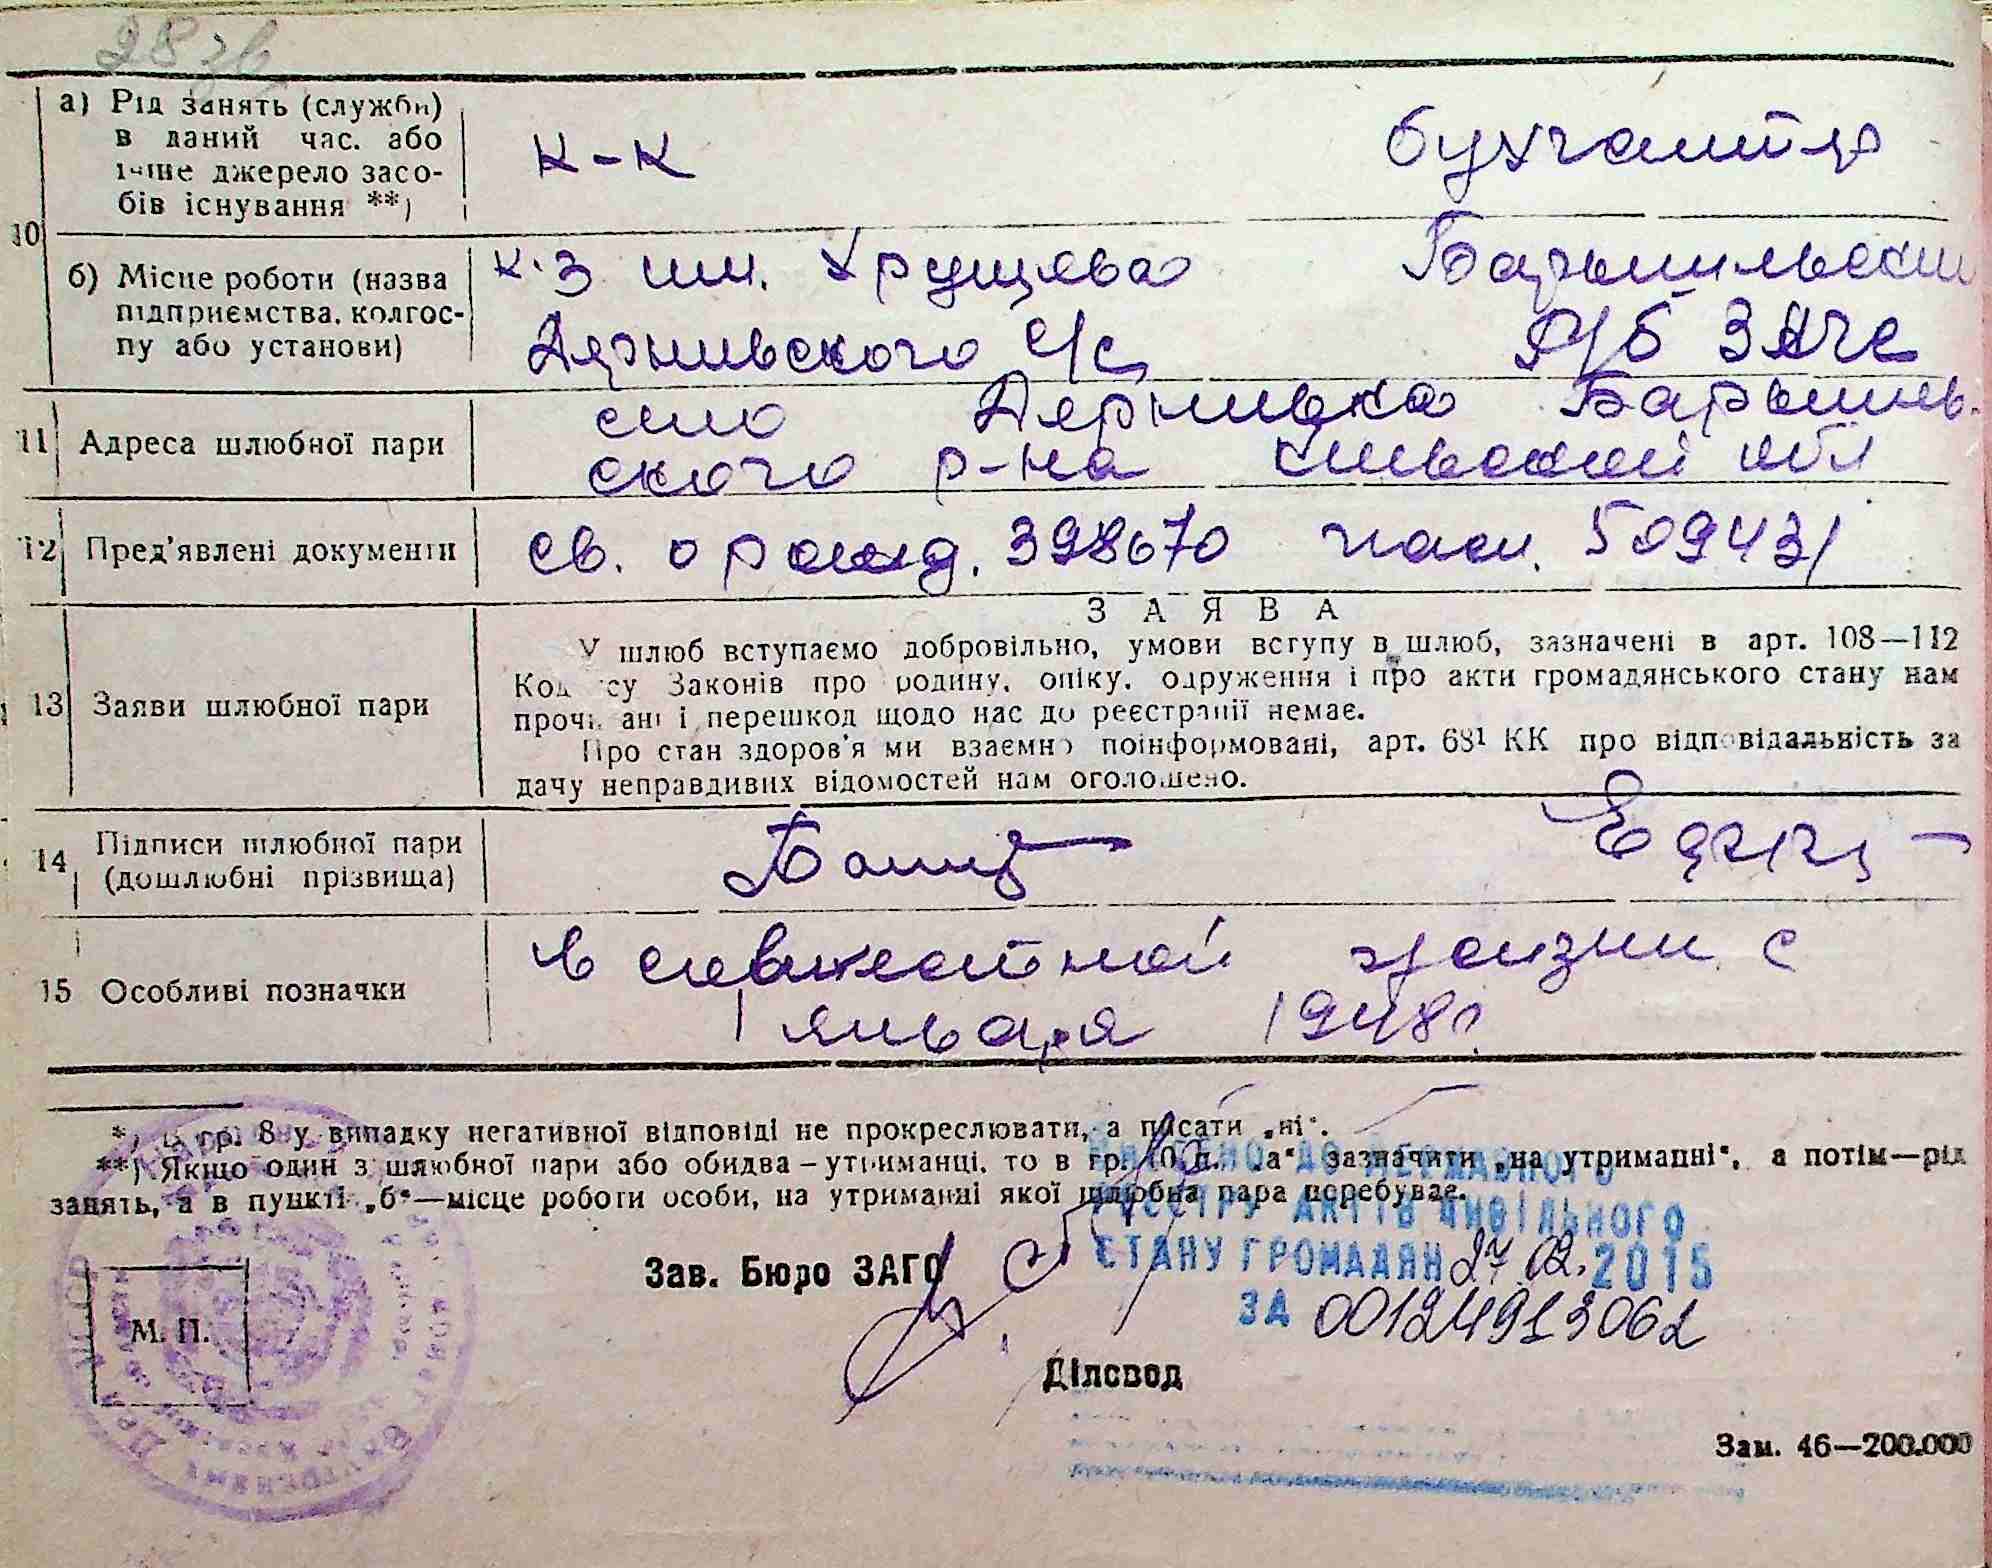 28 зв
10
а) Рід занять (служби) в даний час. або інше джерело засобів існування **)
к-к
бухгалтер
б) Місце роботи (назва підприємства, колгоспу або установи)
к-з им. Хрущева
Дернивского с/с
Барышивский
Р/б ЗАГС
11 Адреса шлюбної пари
село Дернивка Барышив-
ского р-на Киевской обл
12 Пред'явлені документи
св. о рожд. 398670 пасп. 509431
13 Заяви шлюбної пари
ЗАЯВА
У шлюб вступаємо добровільно, умови вступу в шлюб, зазначені в арт. 108—112
Кодексу Законів про родину, опіку, одруження і про акти громадянського стану нам
прочитані і перешкод щодо нас до реєстрації немає.
Про стан здоров'я ми взаємно поінформовані, арт. 68¹ КК про відповідальність за
дачу неправдивих відомостей нам оголошено.
14 Підписи шлюбної пари
(дошлюбні прізвища)
15 Особливі позначки
в совместной жизни с
1 января 1948г.
*) В гр. 8 у випадку негативної відповіді не прокреслювати, а писати „ні“.
**) Якщо один з шлюбної пари або обидва – утриманці, то в гр. 10 п. „а“ зазначити „на утриманні“, а потім—рід
занять, а в пункті „б“—місце роботи особи, на утриманні якої шлюбна пара перебуває.
ДО ДЕРЖАВНОГО
РЕЄСТРУ АКТІВ ЦИВІЛЬНОГО
СТАНУ ГРОМАДЯН 27.02.2015
ЗА 00124913062
Зав. Бюро ЗАГС
М. П.
Діловод
Зам. 46—200.000